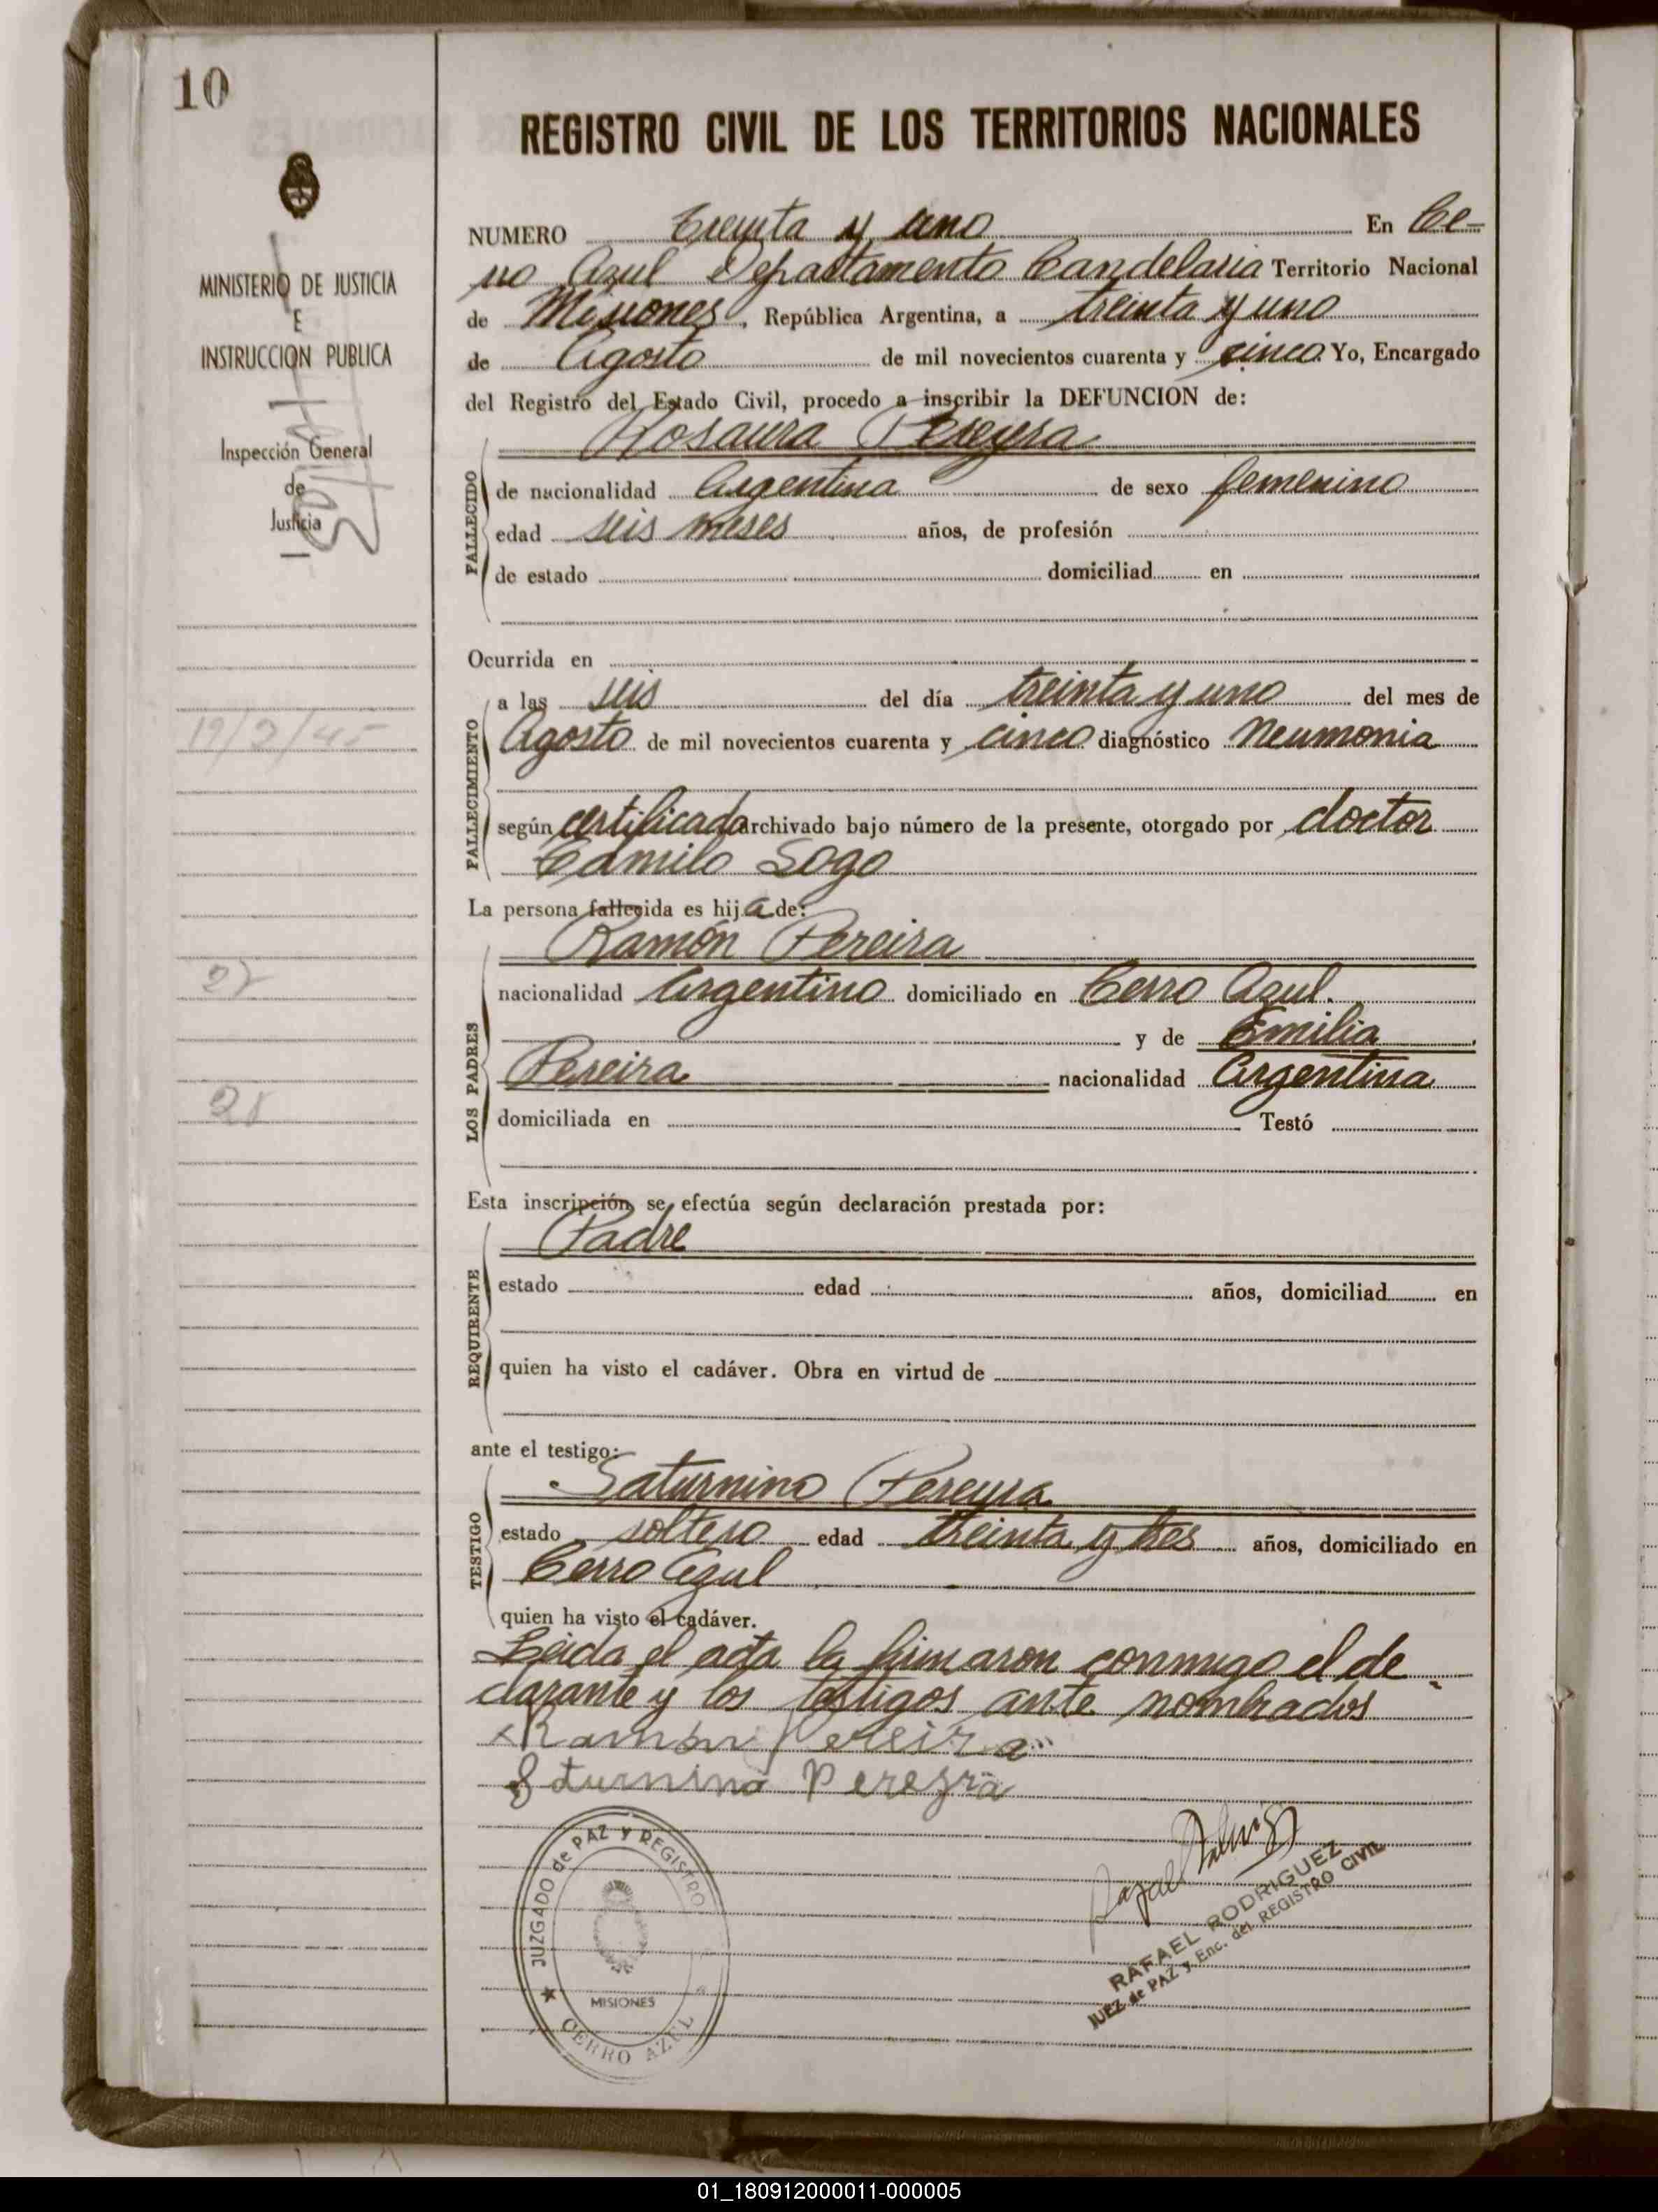 10
MINISTERIO DE JUSTICIA
E
INSTRUCCION PUBLICA
Inspección General
de
Justicia
19/2/45
27
REGISTRO CIVIL DE LOS TERRITORIOS NACIONALES
NUMERO Treinta y uno En Ce-
rro Azul Departamento Candelaria Territorio Nacional
de Misiones, República Argentina, a treinta y uno
de Agosto de mil novecientos cuarenta y cinco. Yo, Encargado
del Registro del Estado Civil, procedo a inscribir la DEFUNCION de:
Rosaura Pereyra
FALLECIDO
de nacionalidad Argentina de sexo femenino
edad seis meses años, de profesión
de estado domiciliad en
Ocurrida en
FALLECIMIENTO
a las seis del día treinta y uno del mes de
Agosto de mil novecientos cuarenta y cinco diagnóstico Neumonia
según certificado archivado bajo número de la presente, otorgado por doctor
Camilo Sogo
La persona fallecida es hija de:
LOS PADRES
Ramón Pereira
nacionalidad Argentino domiciliado en Cerro Azul.
y de Emilia
Pereira nacionalidad Argentina
domiciliada en Testó
Esta inscripción se efectúa según declaración prestada por:
REQUIRENTE
Padre
estado edad años, domiciliad en
quien ha visto el cadáver. Obra en virtud de
ante el testigo:
TESTIGO
Saturnino Pereyra
estado soltero edad treinta y tres años, domiciliado en
Cerro Azul
quien ha visto el cadáver.
Leida el acta la firmaron conmigo el de
clarante y los testigos ante nombrados
Ramon Pereira
Sturnino Pereyra
JUZGADO de PAZ Y REGISTRO
MISIONES
CERRO AZUL
RAFAEL RODRIGUEZ
JUEZ de PAZ y Enc. del REGISTRO CIVIL
01_180912000011-000005